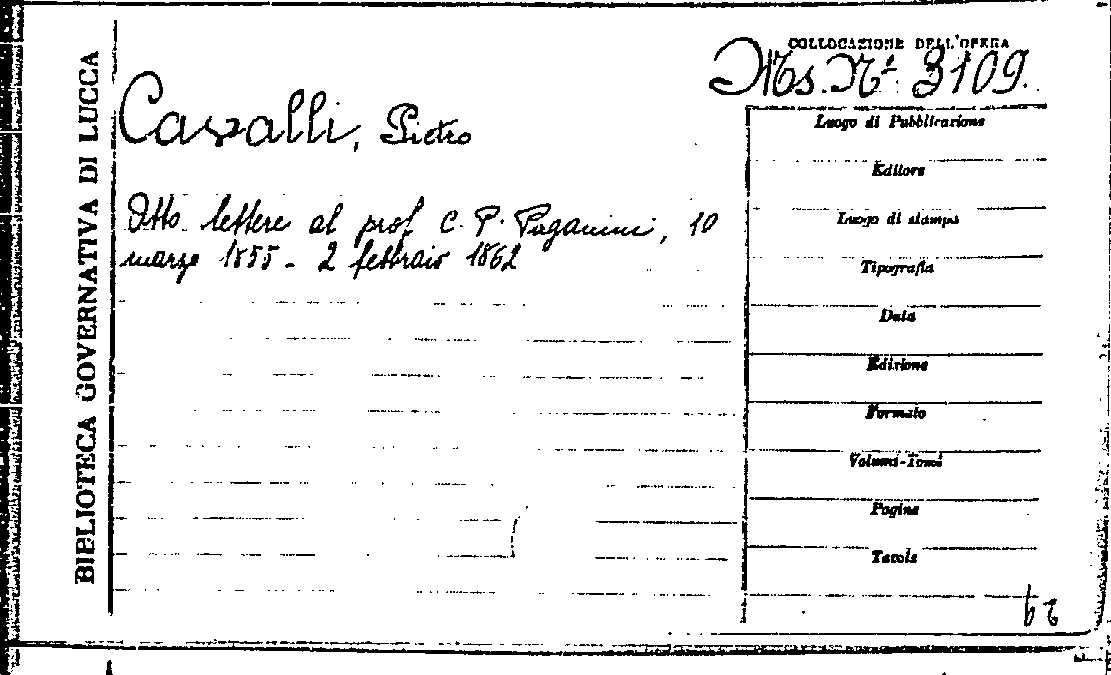 BIBLIOTECA GOVERNATIVA DI LUCCA
COLLOCAZIONE DELL'OPERA
Ms. N.º 3109.
Cavalli, Pietro
Otto lettere al prof. C. P. Paganini, 10
marzo 1855 - 2 febbraio 1862
Luogo di Pubblicazione
Editore
Luogo di stampa
Tipografia
Data
Edizione
Formato
Volumi-Tomi
Pagine
Tavole